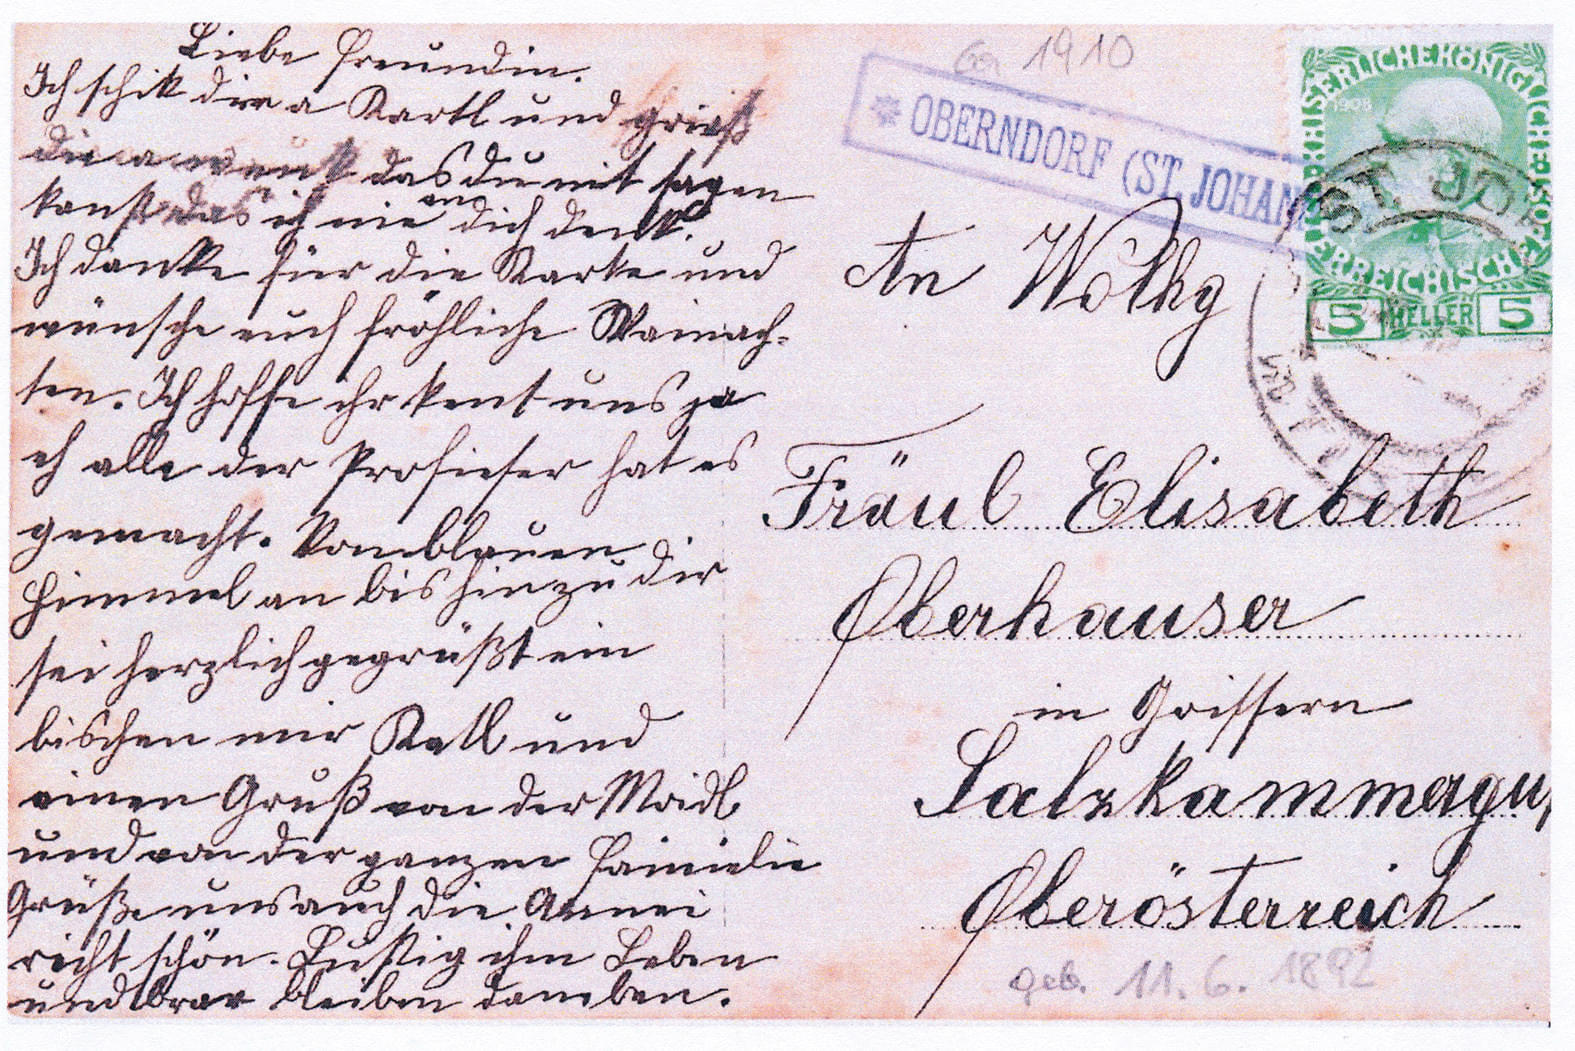 Liebe Freundin.
Ich schik dir a Kartl und grieß
die a wenk das du nit sagen
kanst das ich nie an dich denk.
Ich danke für die Karte und
wünsche euch fröhliche Wainach-
ten. Ich hoffe ihr kent uns ja
eh alle der Profieser hat es
gemacht. Vom blauen
Himmel an bis hin zu dir
sei herzlich gegrüßt ein
bischen mir Katl und
einen Gruß von der Moidl
und von der ganzen Famielie
Grüße uns auch die Annei
recht schön. Lustig ihm Leben
und brav bleiben daneben.
Ca 1910
* OBERNDORF (ST. JOHAN
KAISERLICHE KÖNIGLICHE
ÖSTERREICHISCHE POST
1908
5 HELLER 5
ST. JO
An Wolhg
Fräul Elisabeth
Oberhauser
in Goissern
Salzkammergut
Oberösterreich
geb. 11. 6. 1892